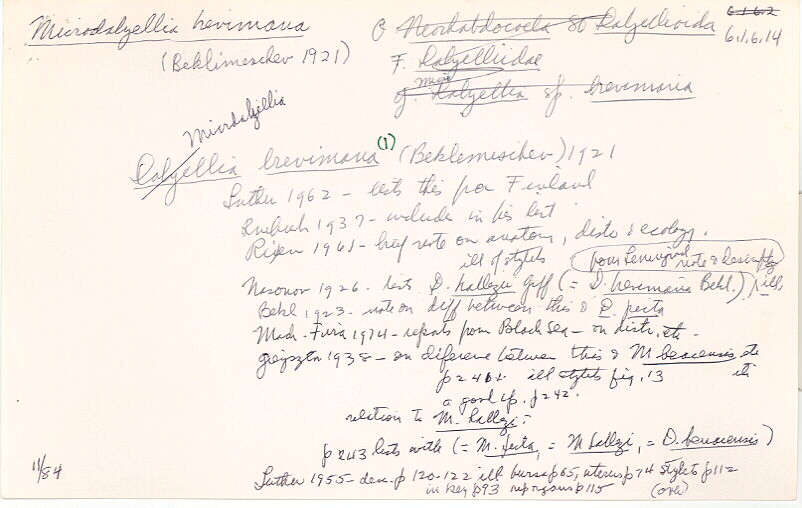 Microdalyellia brevimana
(Beklimeschev 1921)
O Neorhabdocoela SO Dalyellioida
6.1.6.2
6.1.6.14
F. Dalyelliidae
Micro
g. Dalyellia sp. brevimana
Microdalyellia
Dalyellia brevimana (1) (Beklemeschev) 1921
Luther 1962 - lists this for Finland
1937 - include in his list
Rixen 1961 - brief note on anatom, distr & ecology.
ill of stylets
from Leningrad note & descrip
Nasonov 1926 - lists D. hallezii Graff (= D. brevimana Bekl.) ill.
Bekl 1923 - note on diff between this & D. picta
Mack-Fira 1974 - reports from Black Sea - on distr. etc.
Gieysztor 1938 - on diference between this & M benacensis etc
p 240. ill stylets fig. 13
a good sp. p 242.
relation to M. hallezi:
p 243 lists with (= M. picta, = M hallezi, = D. benacensis)
11/84
Luther 1955 - desc. p 120-122 ill bursa p 65, uterus p 74 stylets p 112
in key p 93 rep organs p 115 (over)